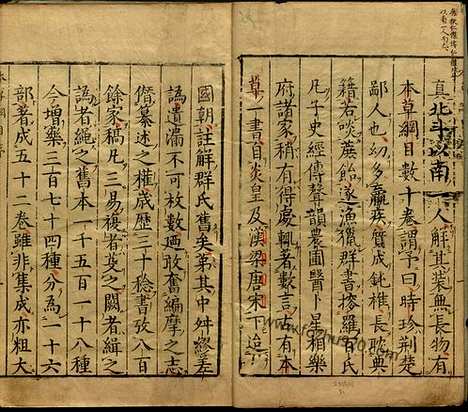 真北斗以南一人解其裝無長物有
本草綱目數十卷謂予曰時珍荊楚
鄙人也幼多羸疾質成鈍椎長耽典
籍若啖蔗飴遂漁獵群書搜羅百氏
凡子史經傳聲韻農圃醫卜星相樂
府諸家稍有得處輒著數言古有本
草一書自炎皇及漢梁唐宋下迨
國朝註解群氏舊矣第其中舛繆差
譌遺漏不可枚數迺敢奮編摩之志
僭纂述之權歲歷三十稔書攷八百
餘家稿凡三易複者芟之闕者緝之
譌者繩之舊本一千五百一十八種
今增藥三百七十四種分為一十六
部著成五十二卷雖非集成亦粗大